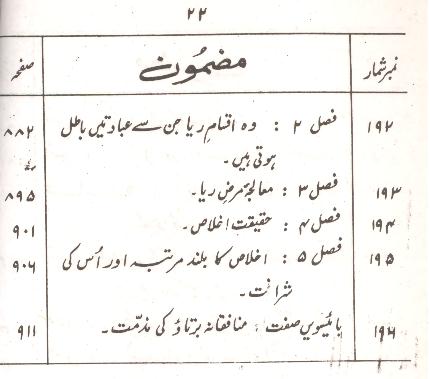 ۲۲
نمبر شمار مضمُون صفحہ
۱۹۲ فصل ۲ : وہ اقسامِ ریا جن سے عبادتیں باطل ۸۸۲
ہوتی ہیں۔
۱۹۳ فصل ۳ : معالجۂ مرضِ ریا۔ ۸۹۵
۱۹۴ فصل ۴ : حقیقت اخلاص۔ ۹۰۱
۱۹۵ فصل ۵ : اخلاص کا بلند مرتبہ اور اُس کی ۹۰۶
شرافت۔
۱۹۶ بائیسویں صفت : منافقانہ برتاؤ کی مذمّت۔ ۹۱۱